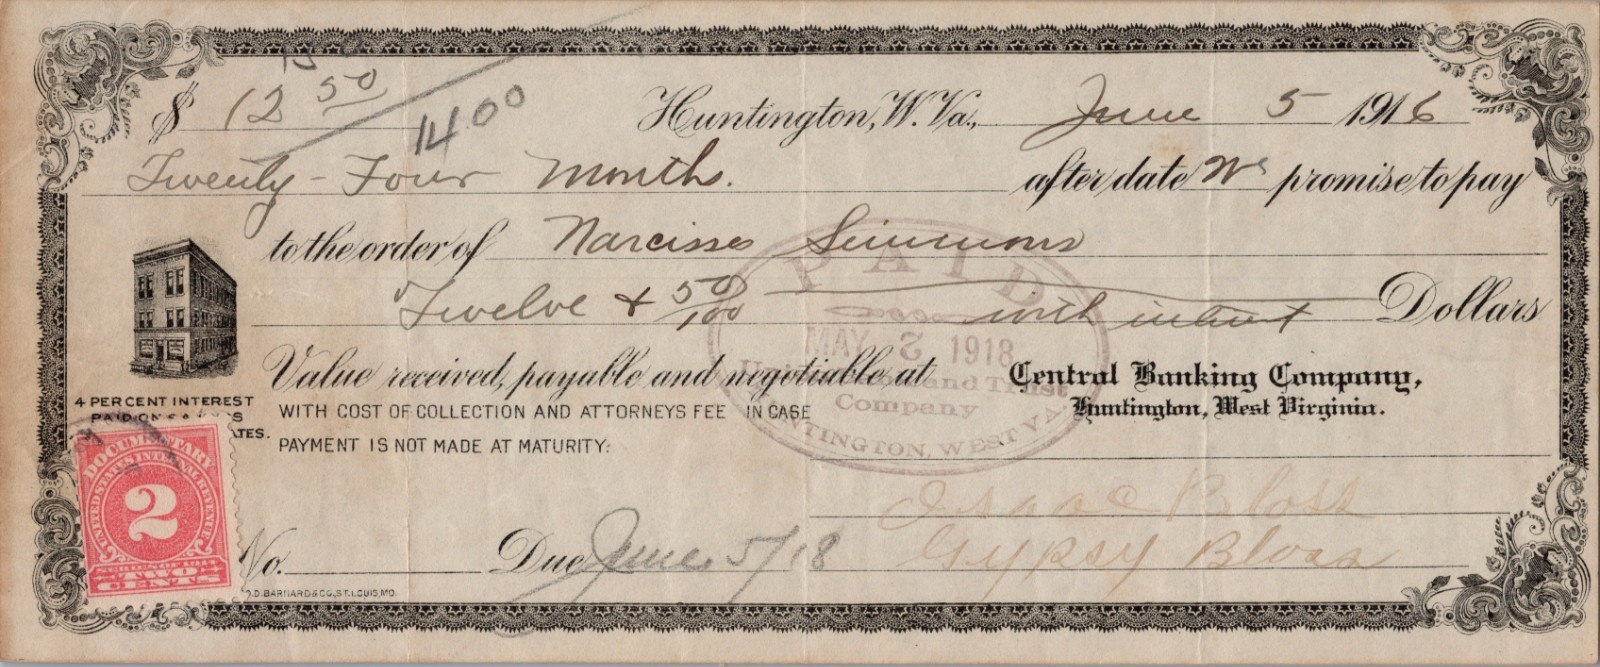 $ 12 50
1400
Huntington, W. Va., June 5 1916
Twenty-Four Months. after date We promise to pay
to the order of Narcisse Simmons
Twelve & 50/100 Dollars
with interest
PAID
MAY 2 1918
and Trust
Company
HUNTINGTON, WEST VA.
Value received, payable and negotiable at Central Banking Company,
Huntington, West Virginia.
4 PER CENT INTEREST
PAID ON
ATES.
WITH COST OF COLLECTION AND ATTORNEYS FEE IN CASE
PAYMENT IS NOT MADE AT MATURITY:
Isaac Bloss
Gypsy Bloss
No. Due June 5/18
DOCUMENTARY
UNITED STATES INTERNAL REVENUE
2
SERIES OF 1914
TWO
CENTS
F.D. BARNARD & CO., ST. LOUIS, MO.